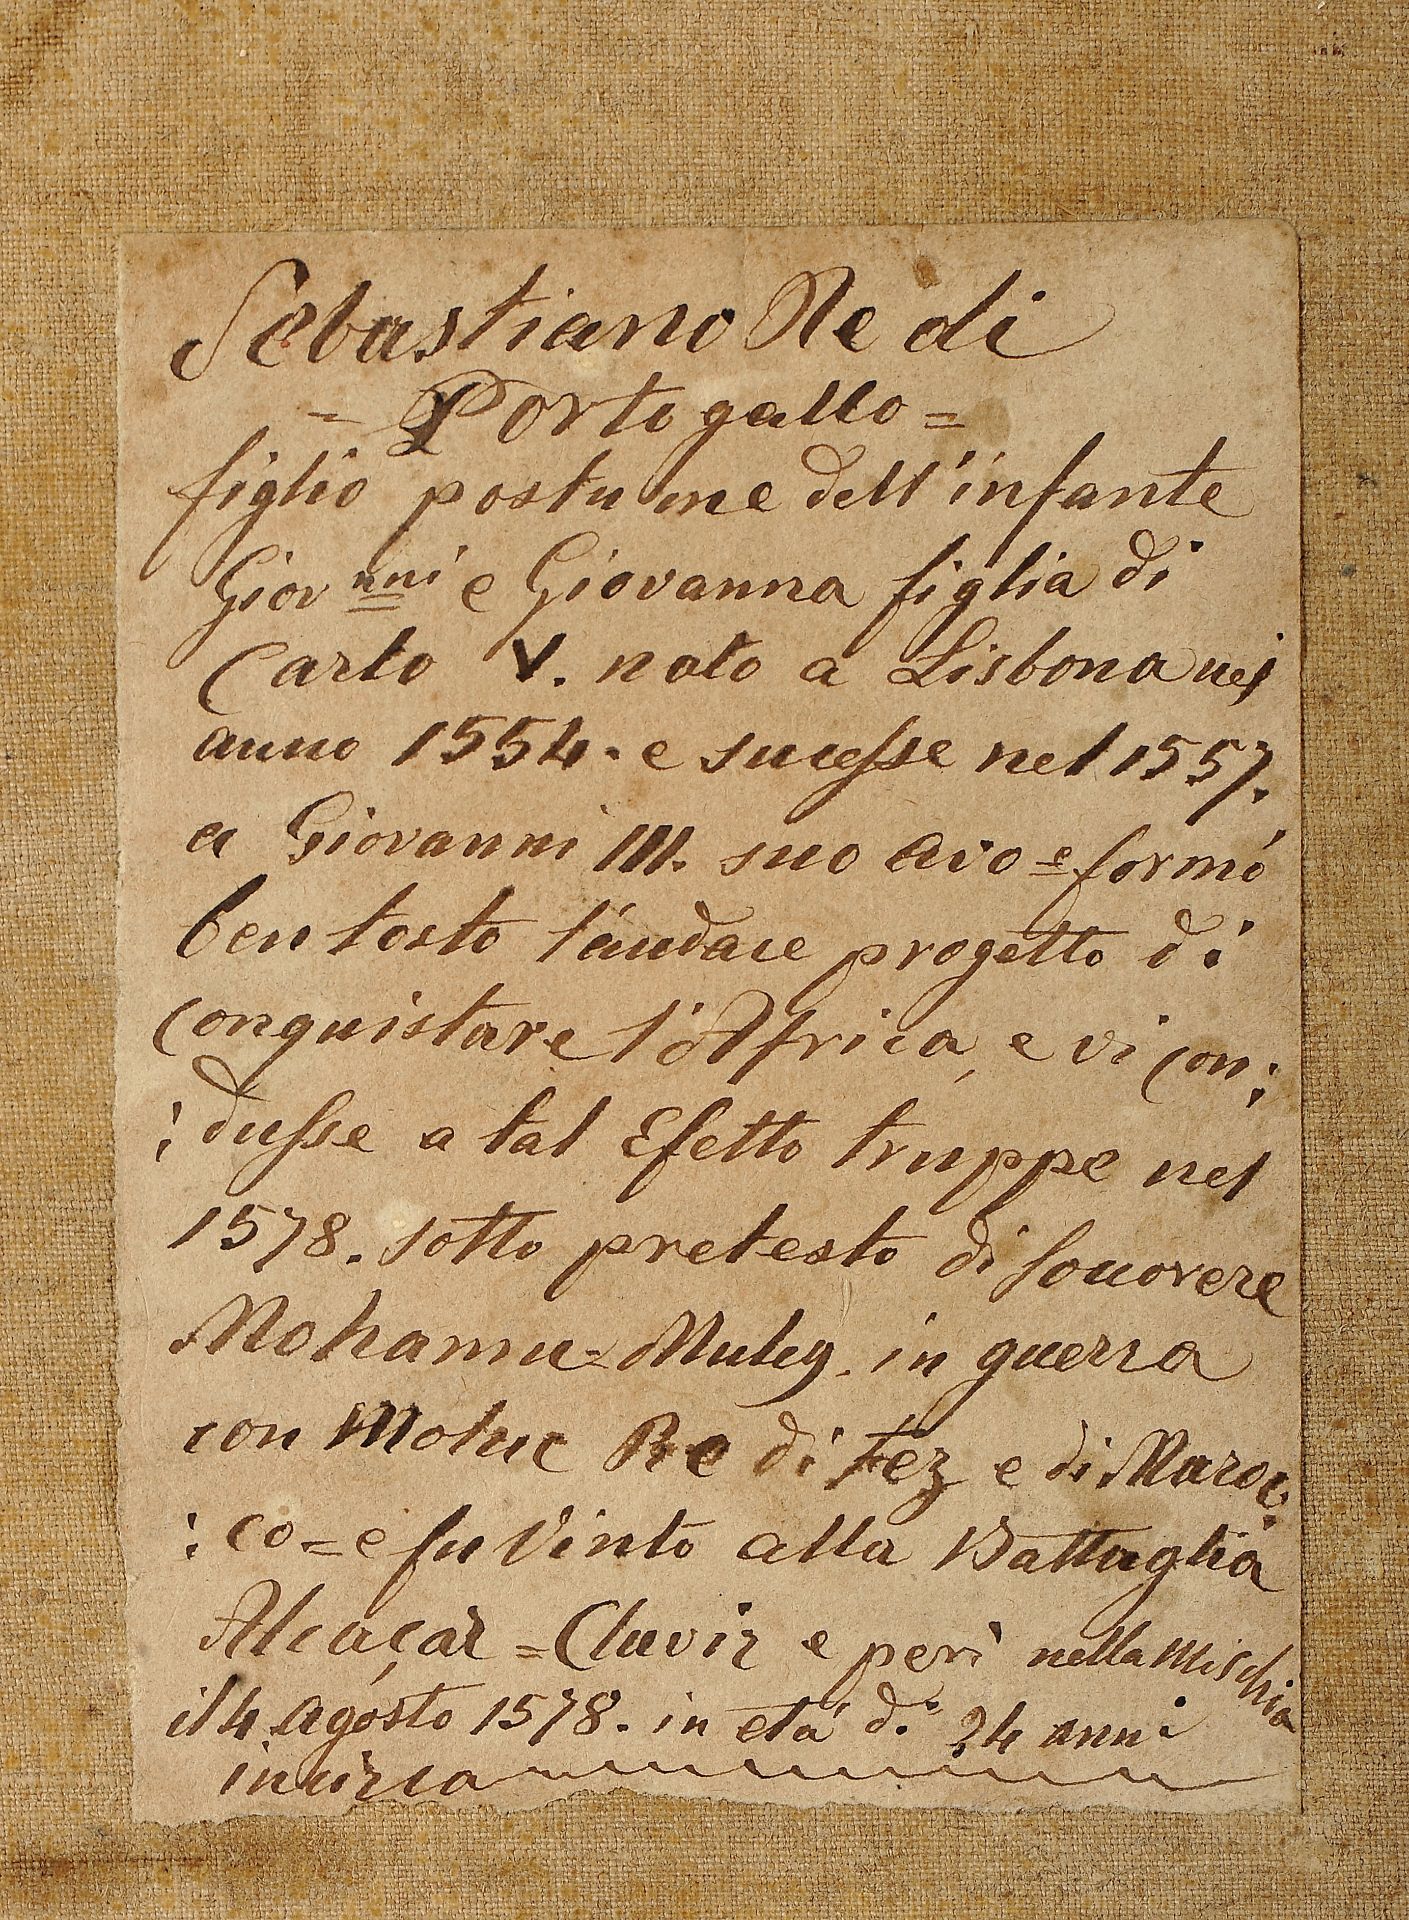 Sebastiano Re di
= Portogallo =
figlio postume dell'infante
Giovnni e Giovanna figlia di
Carlo V. nato a Lisbona nel
anno 1554. e sucesse nel 1557.
a Giovanni III. suo avo = e formó
ben tosto l'audace progetto di
conquistare l'Africa, e vi con:
:dusse a tal Efetto truppe nel
1578. sotto pretesto di socorere
Mohamu = Muley. in guerra
con Moluc Re di Fez e di Maroc:
:co = e fu Vinto alla Battaglia
Alcaçar = Cluvir e perì nella Mischia
il 4 agosto 1578. in etá di 24 anni
incirca